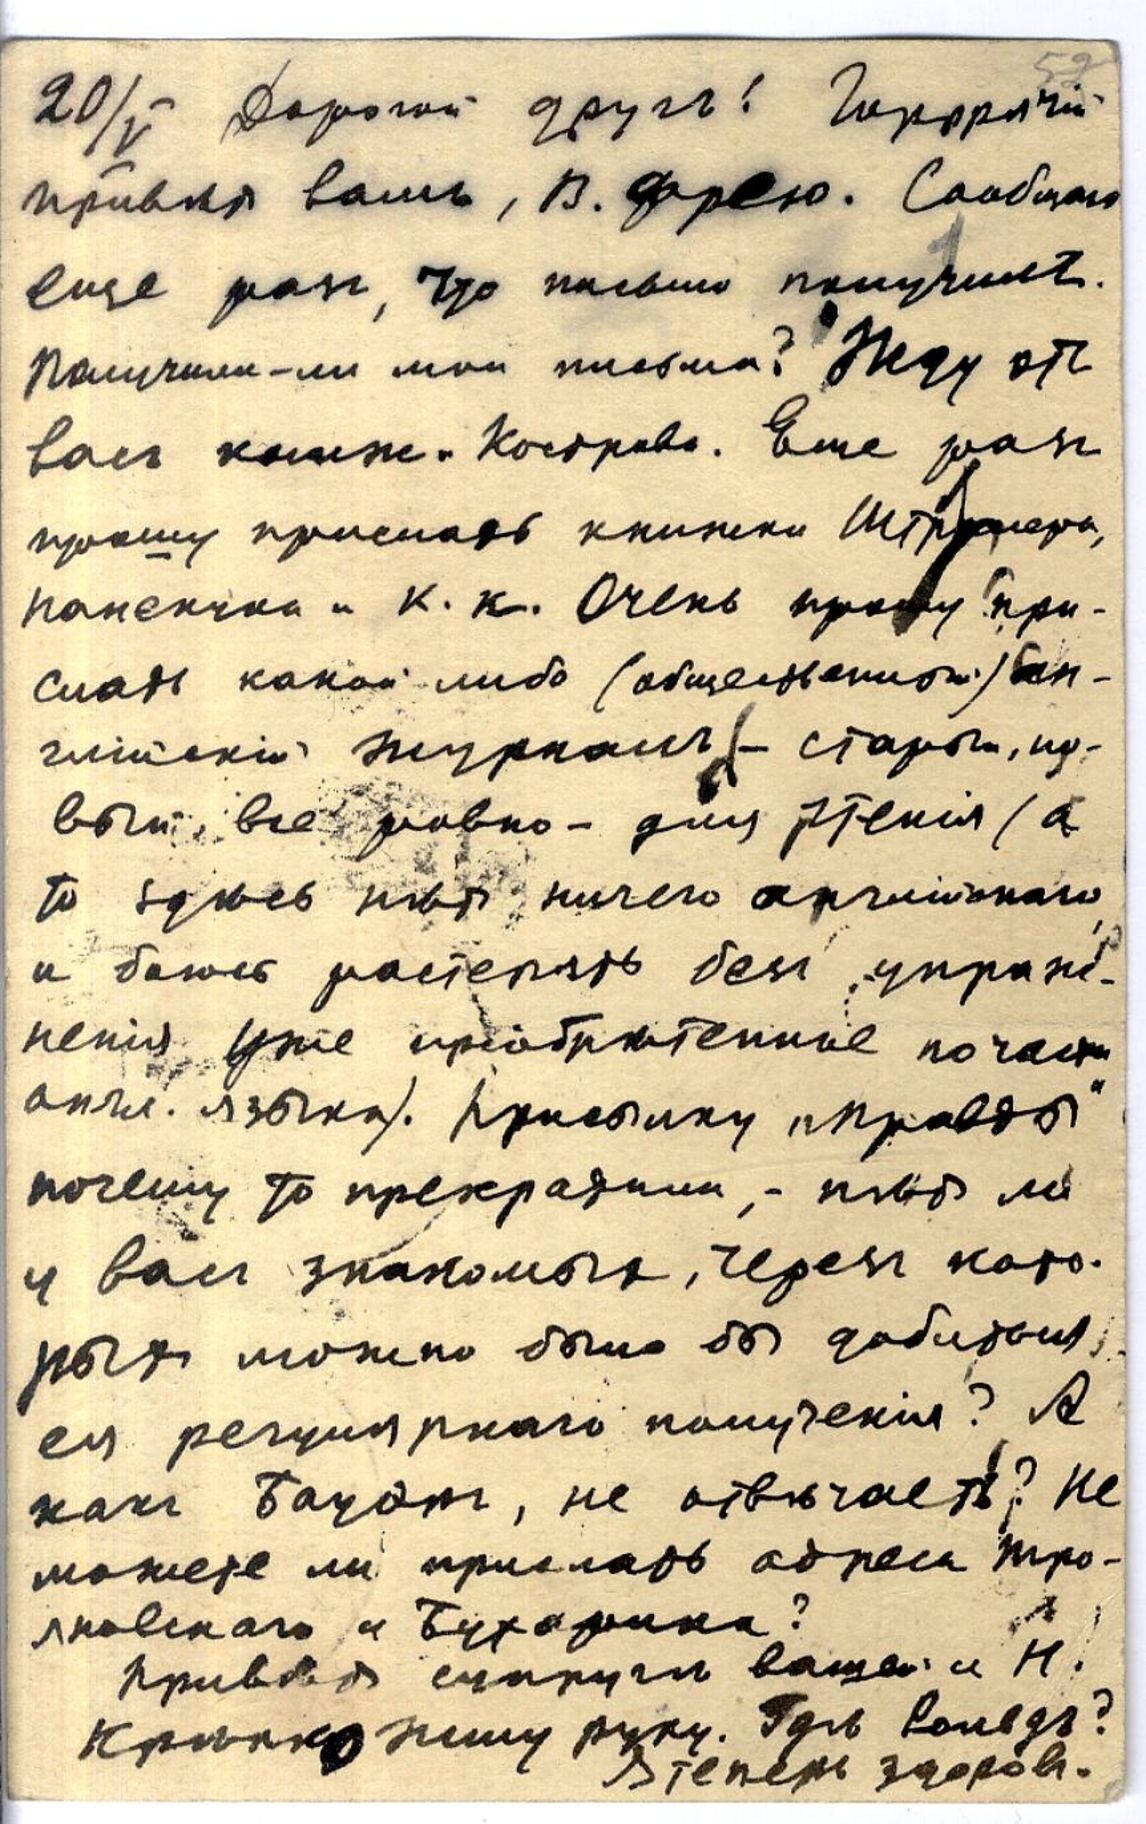 20/V Дорогой другъ! Горррячій
привѣтъ вамъ, В. Фрею. Сообщаю
еще разъ, что письмо получилъ.
Получили-ли мои письма? Жду отъ
васъ Кострова. Еще разъ
прошу прислать книжки Штрассера,
Панекука и К. К. Очень прошу при-
слать какой либо (общественный) ан-
глійскій журналъ – старый, но-
вый, все равно – для чтенія (а
то здѣсь нѣтъ ничего англійскаго
и боюсь растерять безъ упраж-
ненія уже пріобрѣтенное по части
англ. языка). Присылку „Правды“
почему то прекратили, – нѣтъ ли
у васъ знакомыхъ, черезъ кото-
рыхъ можно было бы добиться
ея регулярнаго полученія? А
какъ Бауэръ, не отвѣчаетъ? Не
можете ли прислать адреса Тро-
яновскаго и Бухарина?
Привѣтъ супругѣ вашей и Н.
Крѣпко жму руку. Гдѣ Рольдъ?
Я теперь здоровъ.
52